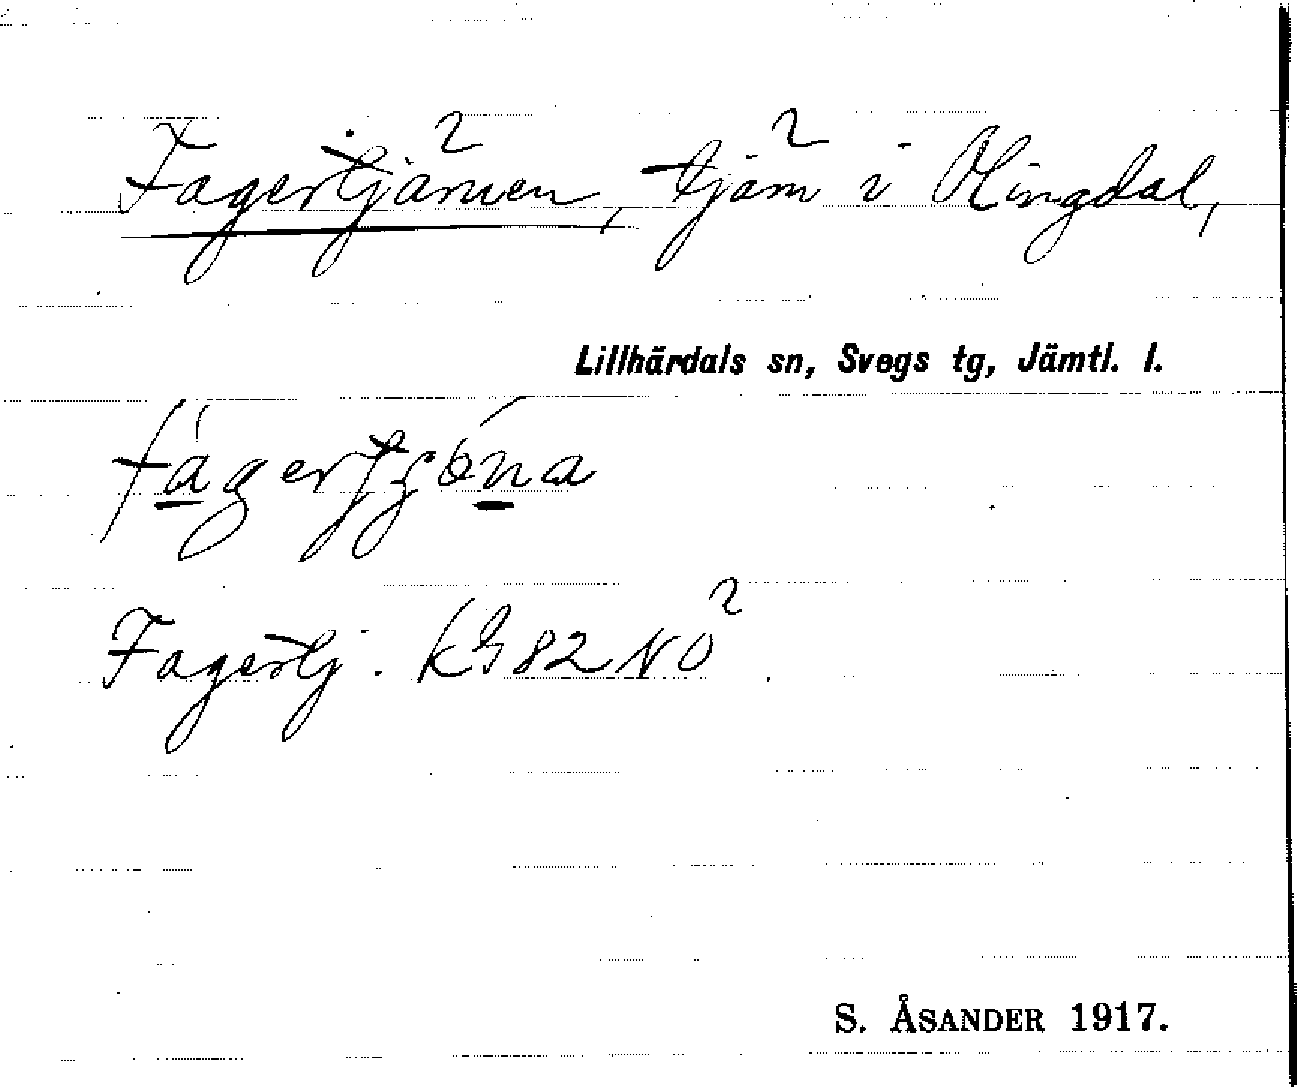 Fagertjärnen, tjärn i Olingdal,
Lillhärdals sn, Svegs tg, Jämtl. l.
Fagertj. KG 82 NO
S. ÅSANDER 1917.